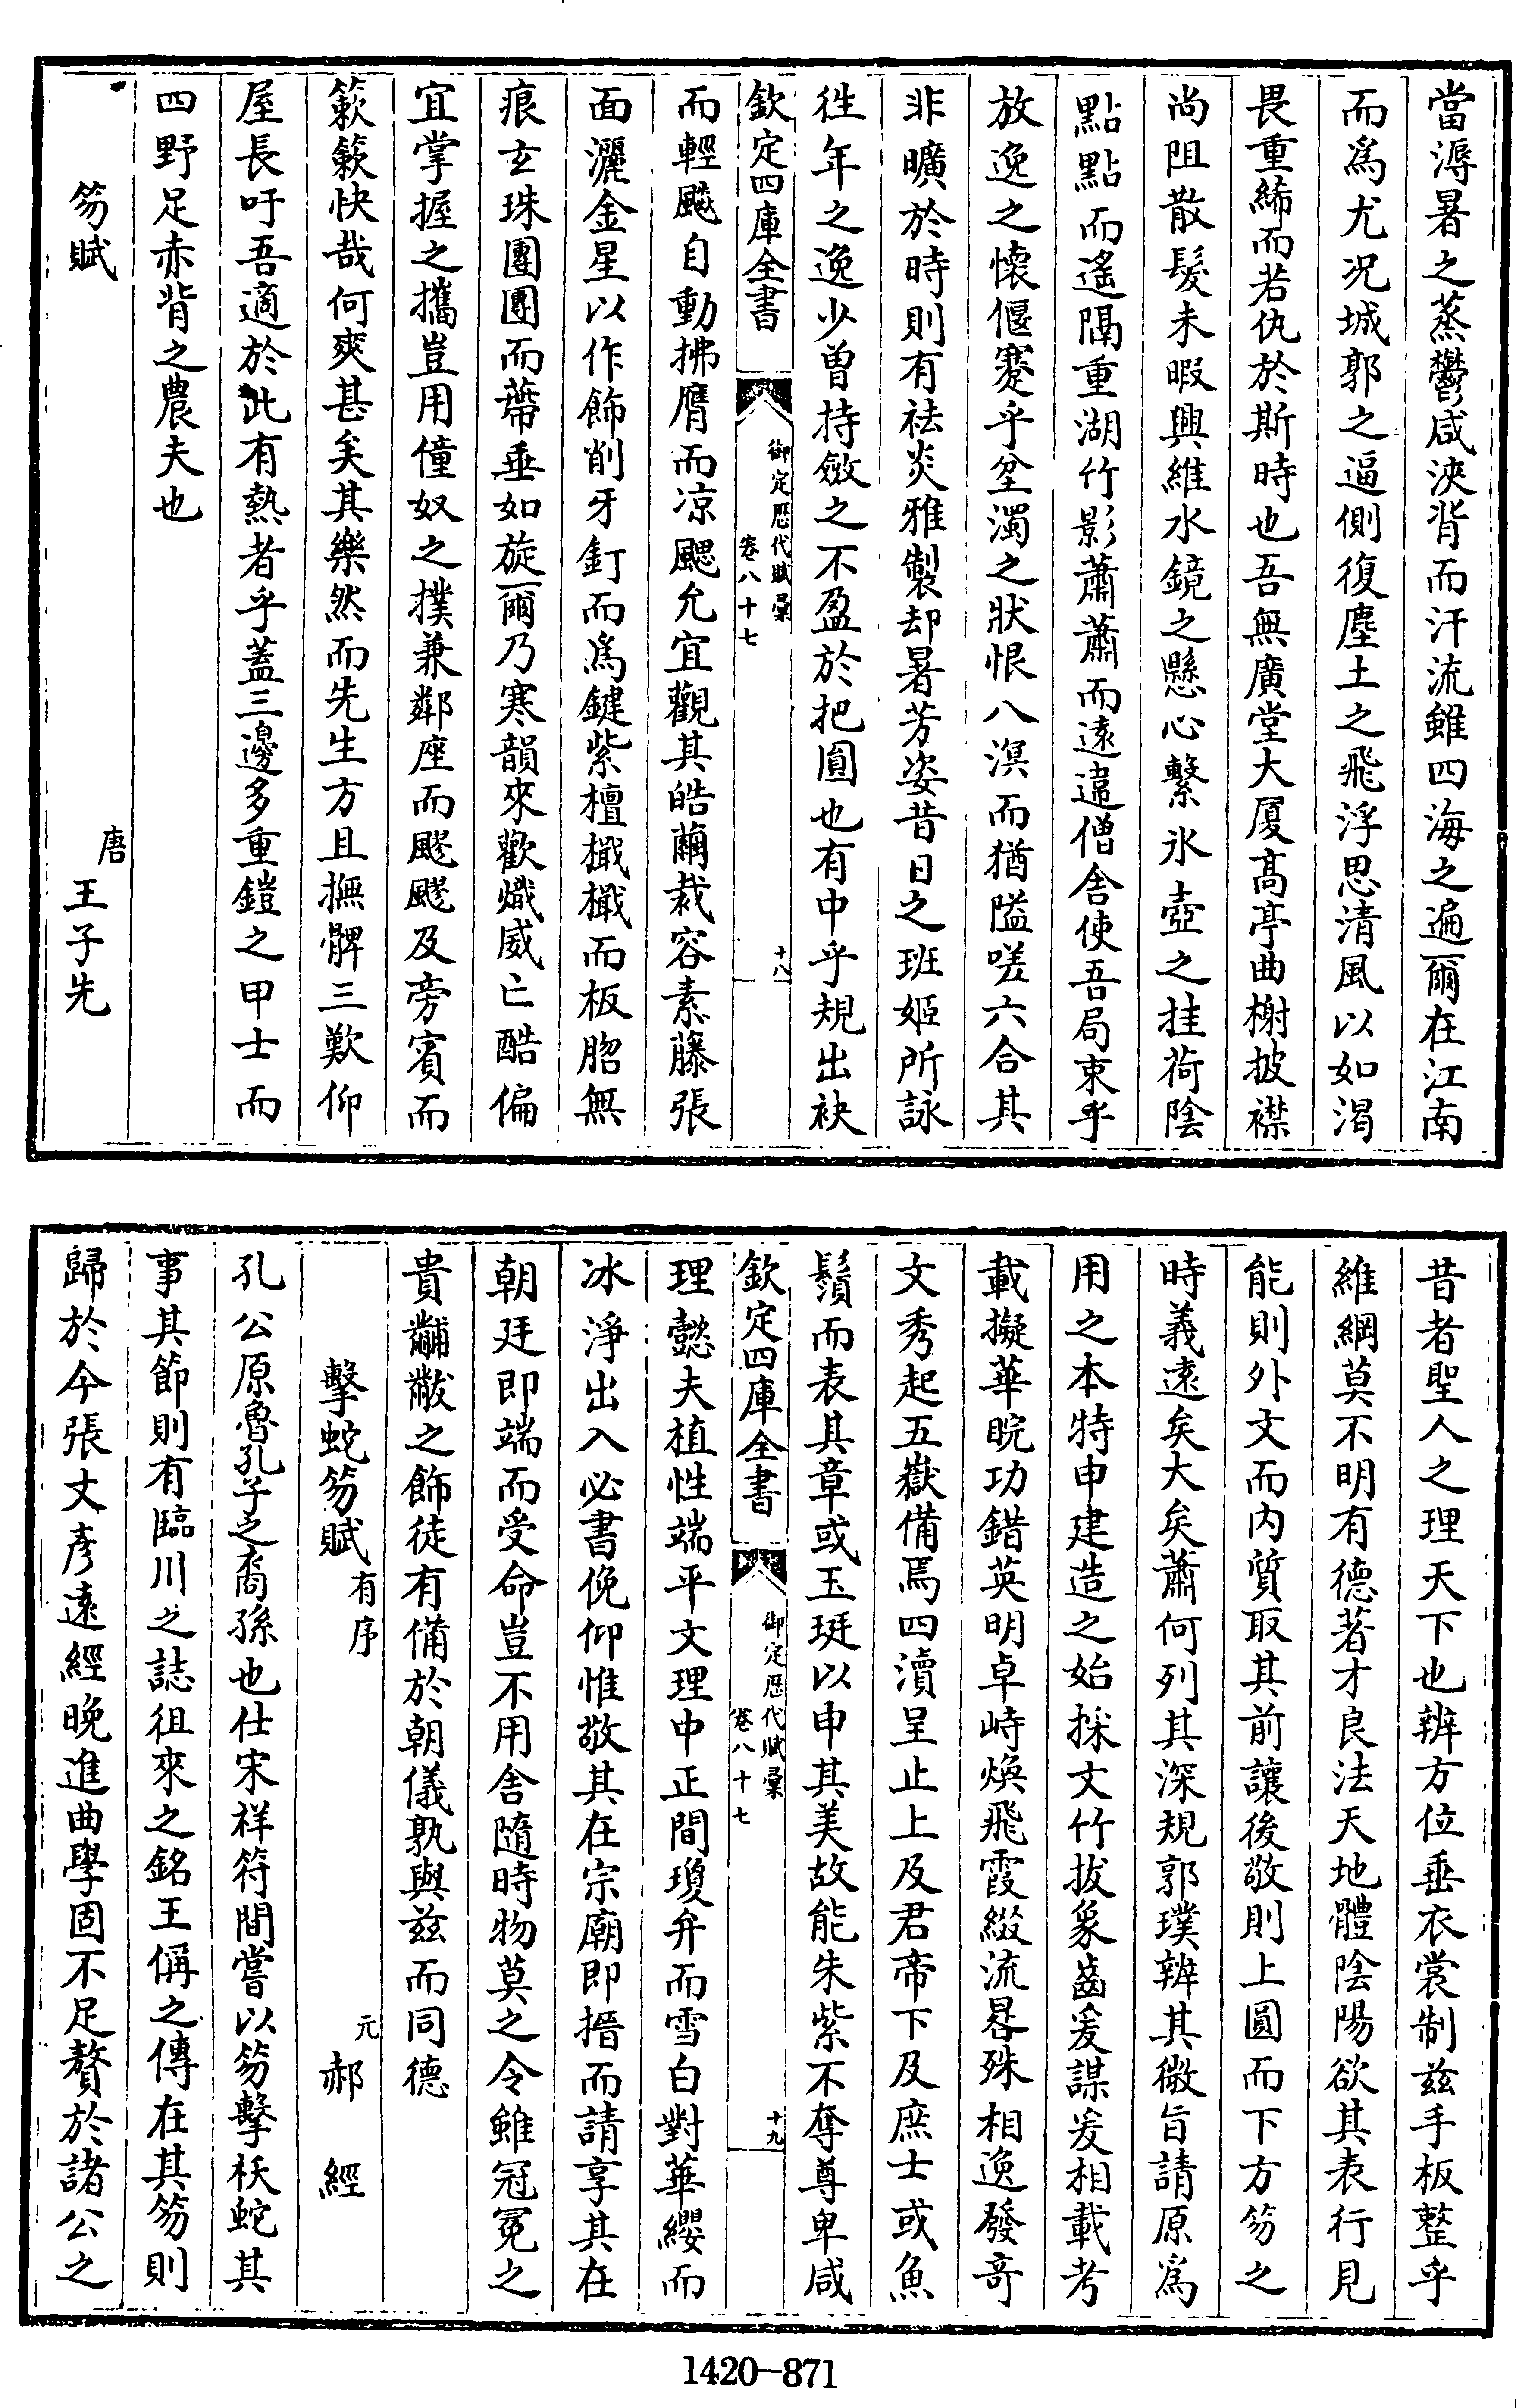 當溽暑之蒸鬱咸浹背而汗流雖四海之遍爾在江南
而爲尤况城郭之逼側復塵土之飛浮思清風以如渴
畏重絺而若仇於斯時也吾無廣堂大厦髙亭曲榭披襟
尚阻散髮未暇興維水鏡之懸心繫氷壺之挂荷陰
點點而遙隔重湖竹影蕭蕭而遠違僧舍使吾局束乎
放逸之懐偃蹇乎坌濁之狀恨八溟而猶隘嗟六合其
非曠於時則有袪炎雅製却暑芳姿昔日之班姬所詠
徃年之逸少曽持斂之不盈於把圓也有中乎規出袂
欽定四庫全書
御定歴代賦彚
卷八十七
十八
而輕飈自動拂膺而凉颸允宜觀其皓繭裁容素藤張
面灑金星以作飾削牙釘而爲鍵紫檀檝檝而板脗無
痕玄珠團團而蔕垂如旋爾乃寒韻來歡熾威亡酷偏
宜掌握之攜豈用僮奴之撲兼鄰座而飂飂及旁賓而
簌簌快哉何爽甚矣其樂然而先生方且撫髀三歎仰
屋長吁吾適於此有熱者乎蓋三邊多重鎧之甲士而
四野足赤背之農夫也
笏賦
唐
王子先
昔者聖人之理天下也辨方位垂衣裳制兹手板整乎
維綱莫不明有德著才良法天地體陰陽欲其表行見
能則外文而内質取其前讓後敬則上圓而下方笏之
時義遠矣大矣蕭何列其深規郭璞辨其微旨請原爲
用之本特申建造之始採文竹拔象齒爰謀爰相載考
載擬華睆功錯英明卓峙煥飛霞綴流晷殊相逸發奇
文秀起五嶽備焉四瀆呈止上及君帝下及庶士或魚
鬚而表其章或玉珽以申其美故能朱紫不奪尊卑咸
欽定四庫全書
御定歴代賦彚
卷八十七
十九
理懿夫植性端平文理中正間瓊弁而雪白對華纓而
冰淨出入必書俛仰惟敬其在宗廟即搢而請享其在
朝廷即端而受命豈不用舍隨時物莫之令雖冠冕之
貴黼黻之飾徒有備於朝儀孰與兹而同德
擊蛇笏賦有序
元
郝經
孔公原魯孔子之裔孫也仕宋祥符間嘗以笏擊祅蛇其
事其節則有臨川之誌徂來之銘王偁之傳在其笏則
歸於今張丈彥遠經晚進曲學固不足贅於諸公之
1420-871